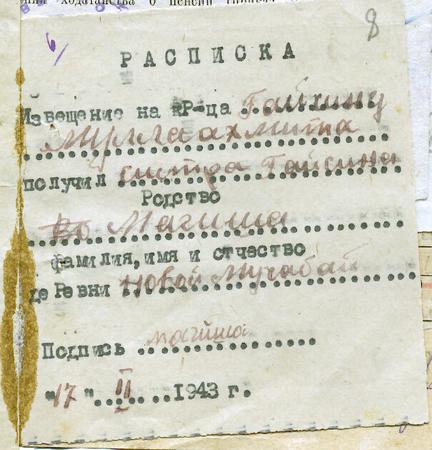 ходатайства о пенсии
8
РАСПИСКА
Извещение на кР-ца Гайсину
Муллаахмита
получил систра Гайсина
Родство
Магиша
фамилия, имя и отчество
деРевни Новой
Подпись магиша
"17" II 1943 г.